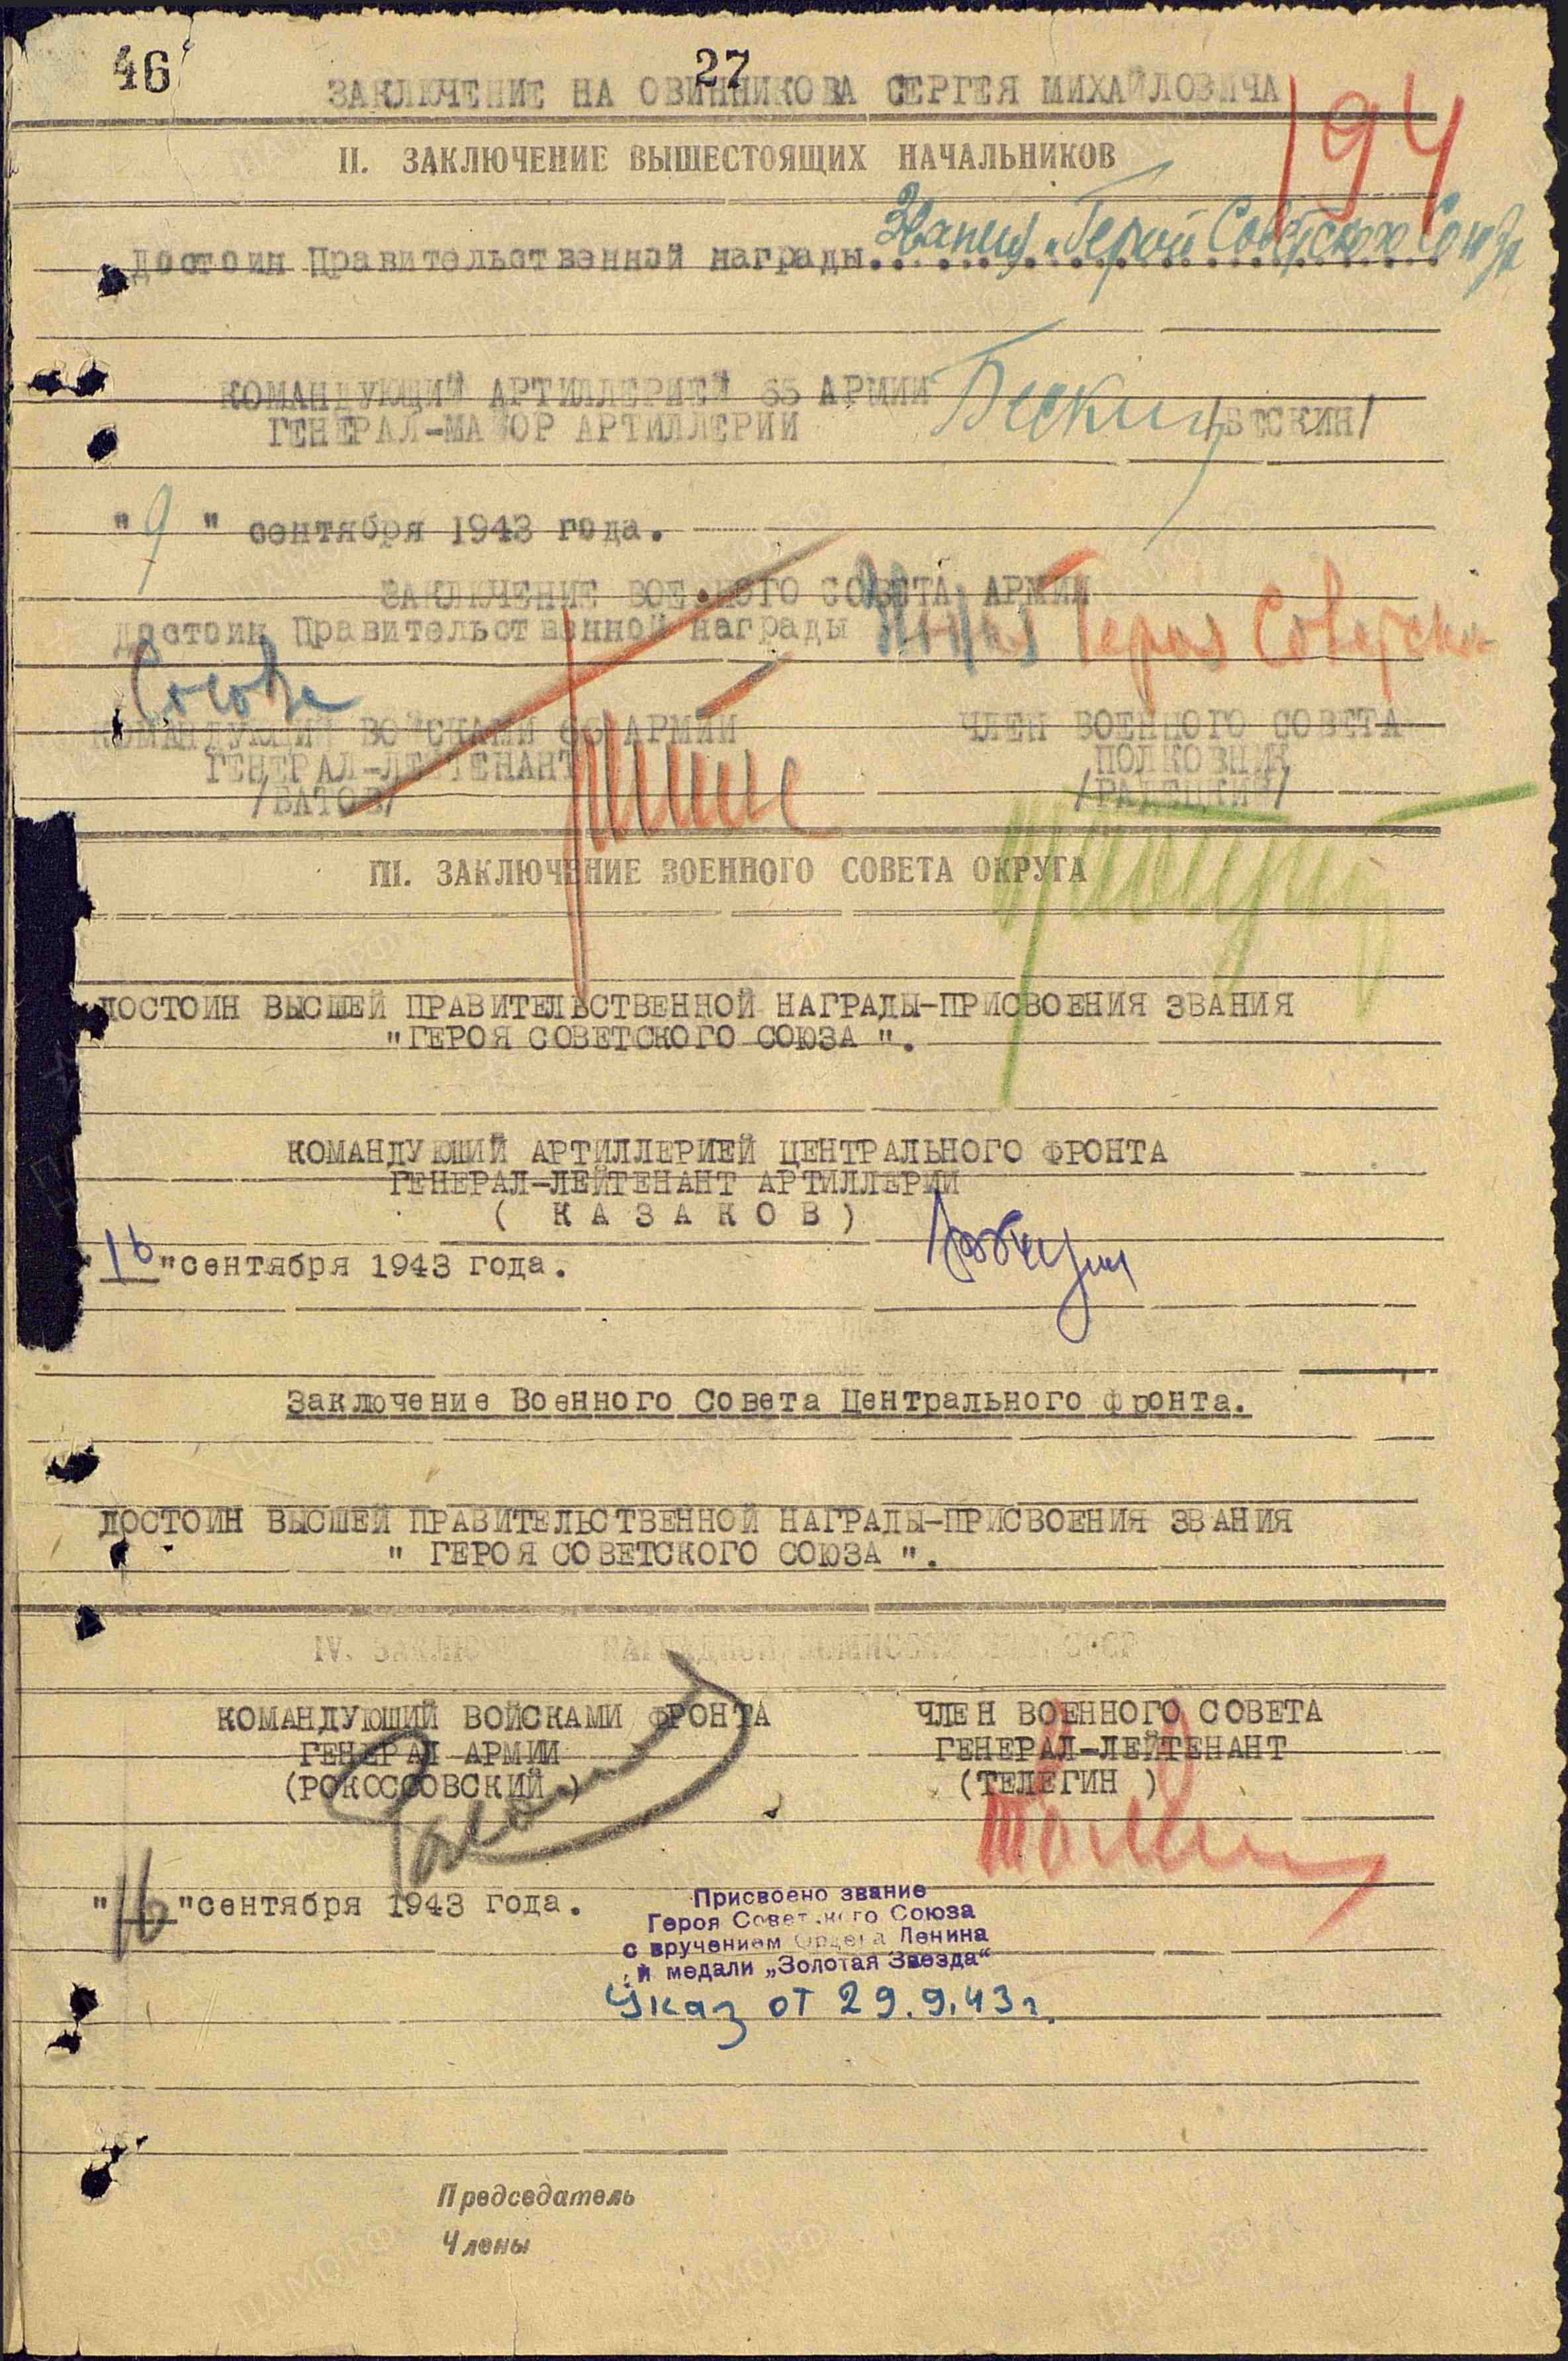 46 27
ЗАКЛЮЧЕНИЕ НА ОВИННИКОВА СЕРГЕЯ МИХАЙЛОВИЧА
194
II. ЗАКЛЮЧЕНИЕ ВЫШЕСТОЯЩИХ НАЧАЛЬНИКОВ
Достоин Правительственной награды. Звания „Герой Советского Союза
КОМАНДУЮЩИЙ АРТИЛЛЕРИЕЙ 65 АРМИИ
ГЕНЕРАЛ-МАЙОР АРТИЛЛЕРИИ /БЕСКИН/
"9" сентября 1943 года.
ЗАКЛЮЧЕНИЕ ВОЕННОГО СОВЕТА АРМИИ
Достоин Правительственной награды Героя Советско-
Союза
КОМАНДУЮЩИЙ ВОЙСКАМИ 65 АРМИИ ЧЛЕН ВОЕННОГО СОВЕТА
ГЕНЕРАЛ-ЛЕЙТЕНАНТ ПОЛКОВНИК
/БАТОВ/ /РАДЕЦКИЙ/
III. ЗАКЛЮЧЕНИЕ ВОЕННОГО СОВЕТА ОКРУГА
ДОСТОИН ВЫСШЕЙ ПРАВИТЕЛЬСТВЕННОЙ НАГРАДЫ-ПРИСВОЕНИЯ ЗВАНИЯ
"ГЕРОЯ СОВЕТСКОГО СОЮЗА ".
КОМАНДУЮЩИЙ АРТИЛЛЕРИЕЙ ЦЕНТРАЛЬНОГО ФРОНТА
ГЕНЕРАЛ-ЛЕЙТЕНАНТ АРТИЛЛЕРИИ
( К А З А К О В )
"16"сентября 1943 года.
Заключение Военного Совета Центрального фронта.
ДОСТОИН ВЫСШЕЙ ПРАВИТЕЛЬСТВЕННОЙ НАГРАДЫ-ПРИСВОЕНИЯ ЗВАНИЯ
" ГЕРОЯ СОВЕТСКОГО СОЮЗА ".
КОМАНДУЮЩИЙ ВОЙСКАМИ ФРОНТА ЧЛЕН ВОЕННОГО СОВЕТА
ГЕНЕРАЛ АРМИИ ГЕНЕРАЛ-ЛЕЙТЕНАНТ
(РОКОССОВСКИЙ ) (ТЕЛЕГИН )
"16"сентября 1943 года.
Присвоено звание
Героя Советского Союза
с вручением Ордена Ленина
и медали „Золотая Звезда“
Указ от 29.9.43г.
Председатель
Члены